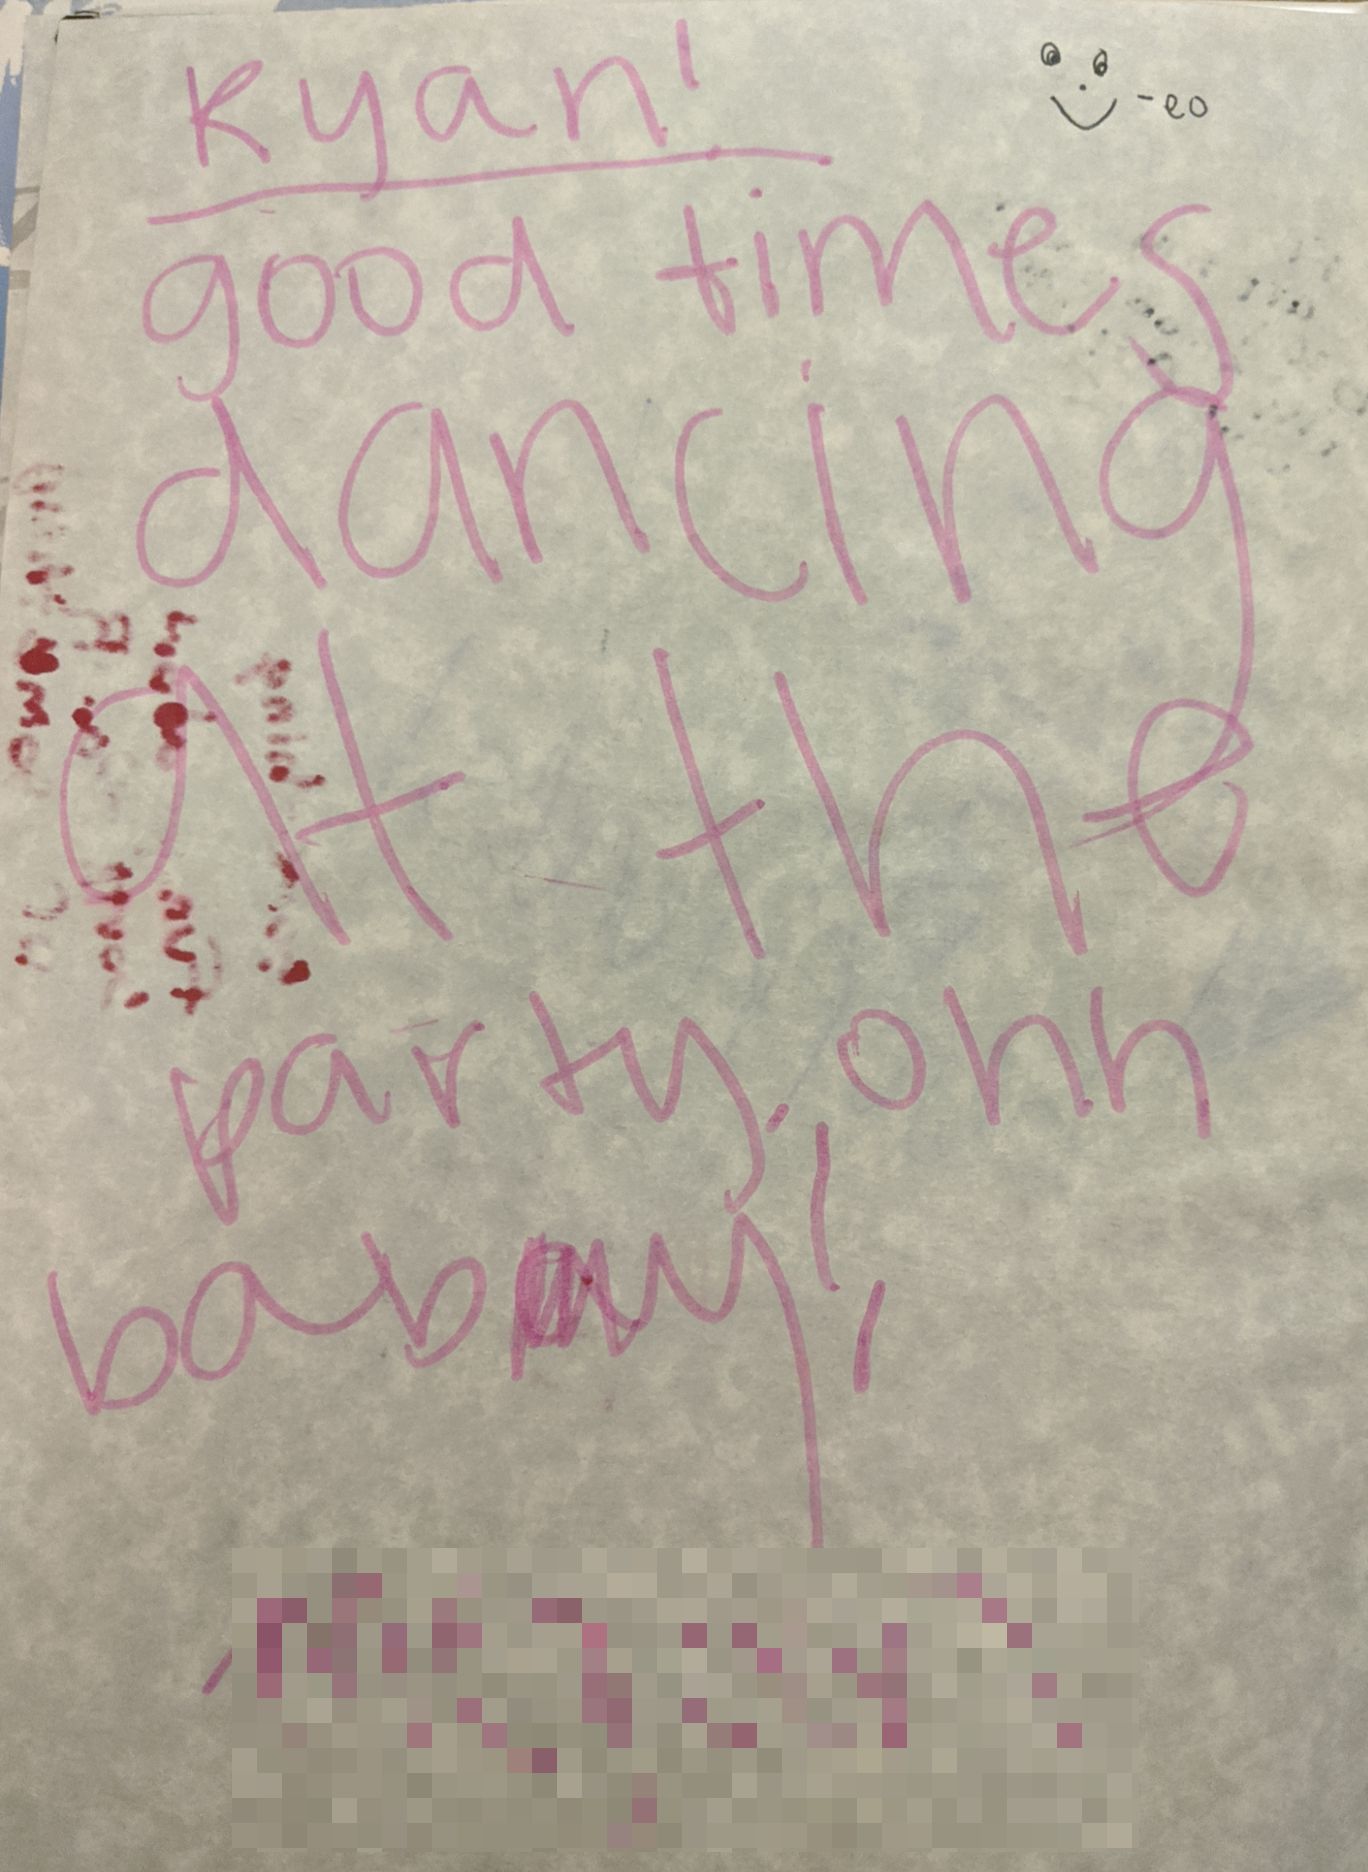 Kyan!
-eo
good times
dancing
at the
party, ohh
baby!!